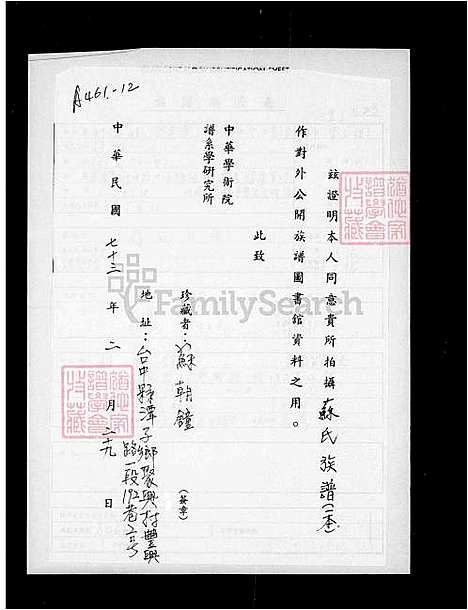 A461-12
茲證明本人同意貴所拍攝蘇氏族譜(一本)
作對外公開族譜圖書館資料之用。
此致
中華學術院
譜系學研究所
珍藏者:蘇朝鐘
(簽章)
地址:台中縣潭子鄉聚興村豐興
路一段192巷2号
中華民國七十三年二月二十九日
FamilySearch
譜學會
珍藏
譜學會
珍藏